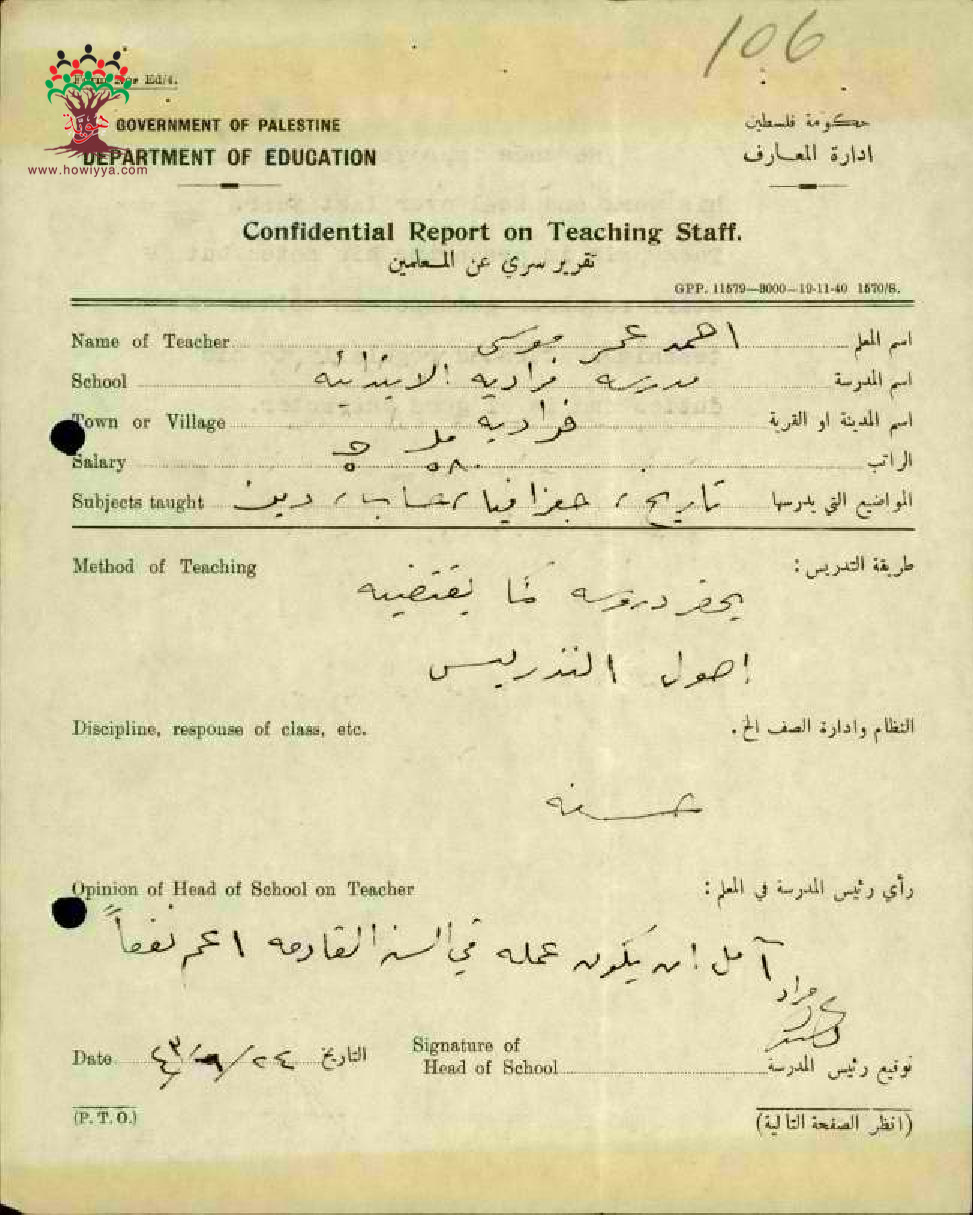 106
Ed/4.
GOVERNMENT OF PALESTINE
حكومة فلسطين
DEPARTMENT OF EDUCATION
ادارة المعارف
www.howiyya.com
Confidential Report on Teaching Staff.
تقرير سري عن المعلمين
GPP. 11579—3000—19-11-40 1570/S.
Name of Teacher احمد عمر موسى اسم المعلم
School مدرسة فراديه الابتدائية اسم المدرسة
Town or Village فراديه اسم المدينة او القرية
Salary الراتب
Subjects taught تاريخ، جغرافيا، حساب، دين المواضيع التي يدرسها
Method of Teaching طريقة التدريس:
يحضر دروسه كما يقتضيه
اصول التدريس
Discipline, response of class, etc. النظام وادارة الصف الخ.
حسنه
Opinion of Head of School on Teacher رأي رئيس المدرسة في المعلم:
آمل ان يكون عمله في السنه القادمه اعم نفعاً
Date ٢٤/٦/٤٣ التاريخ
Signature of
Head of School توقيع رئيس المدرسة
(P. T. O.) (انظر الصفحة التالية)